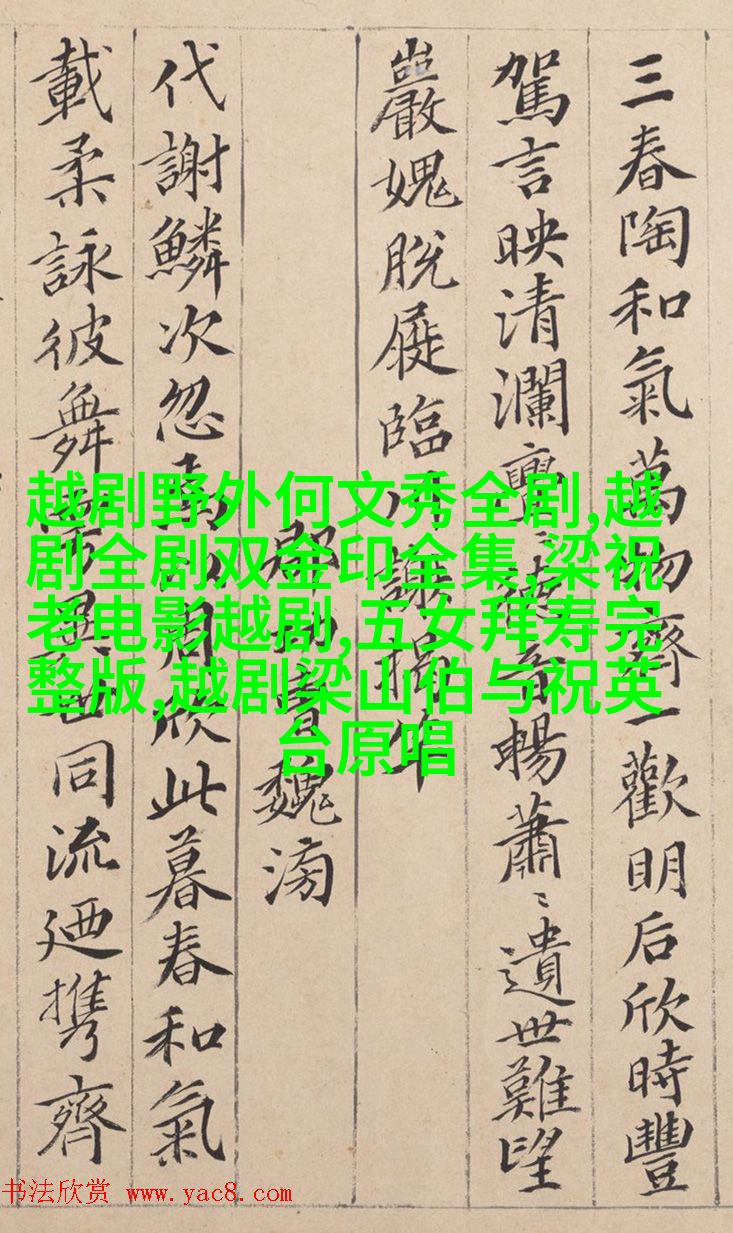 三春陶和氣萬物齊一歡明后欣時豐
駕言映清瀾亹〻德音暢蕭〻遺世難望
巖媿脫屣臨川謝揭竿
郡功曹魏滂
代謝鱗次忽焉以周欣此暮春和氣
載柔詠彼舞雩異世同流迺攜齊
越剧野外何文秀全剧,越
剧全剧双金印全集,梁祝
老电影越剧,五女拜寿完
整版,越剧梁山伯与祝英
台原唱
书法欣赏 www.yac8.com